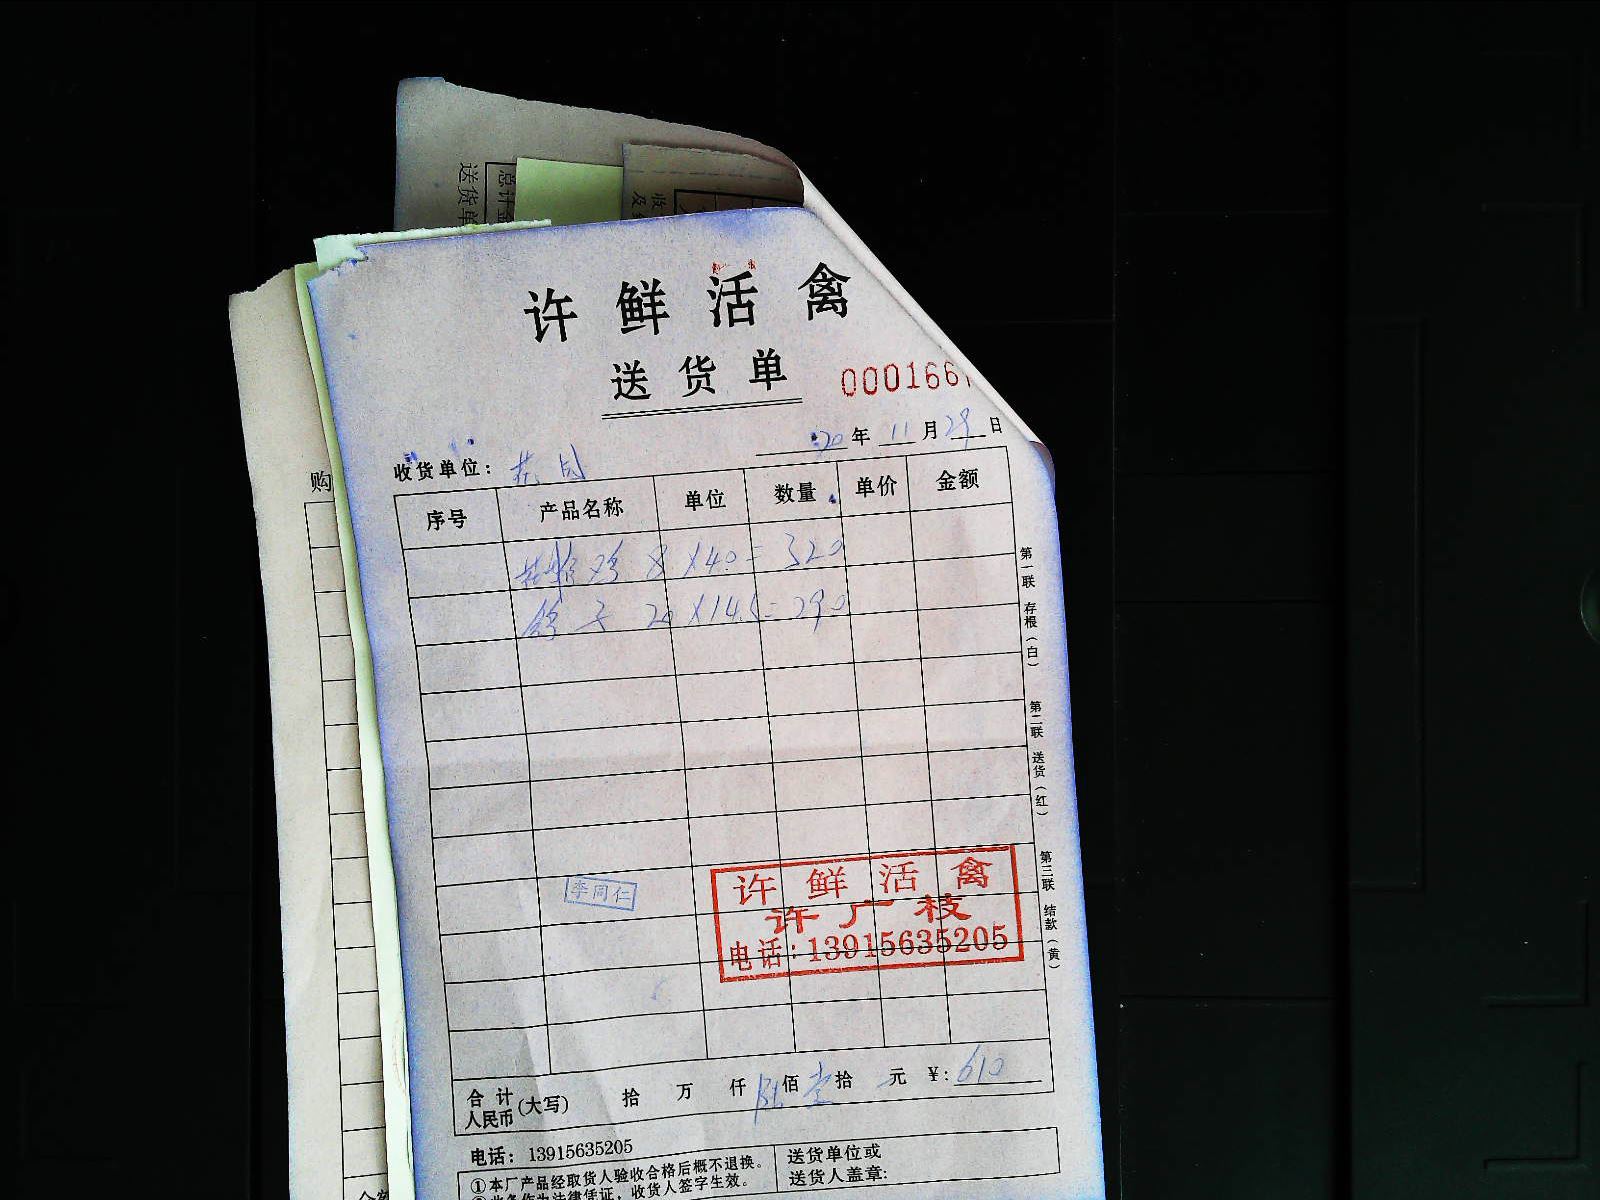 总计金
送货单
收
及
许鲜活禽
送货单
000166
20年11月29日
收货单位：
购
序号 产品名称 单位 数量 单价 金额
8×40=320
鸽子 20×14.5=290
第一联 存根（白） 第二联 送货（红） 第三联 结款（黄）
李同仁
许鲜活禽
许广枝
电话：13915635205
合计人民币(大写) 拾 万 仟 陆佰 壹拾 元 ¥:610
电话：13915635205
①本厂产品经取货人验收合格后概不退换。
作为法律凭证，收货人签字生效。
送货单位或
送货人盖章: